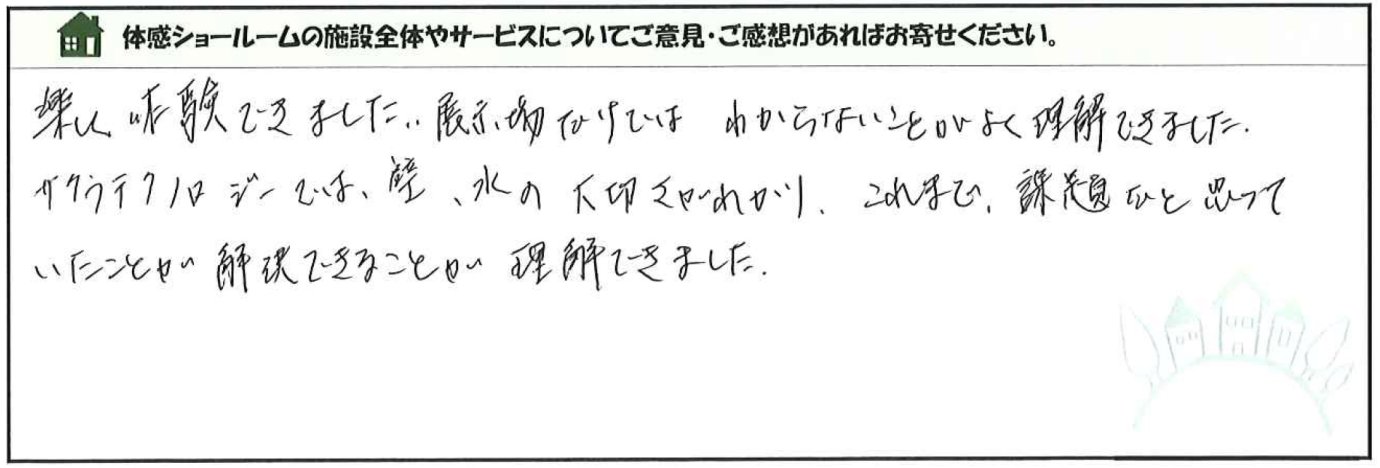 体感ショールームの施設全体やサービスについてご意見・ご感想があればお寄せください。
楽しい体験できました。展示場だけでは わからないことがよく理解できました。
サクラテクノロジーでは、壁、水の大切さがわかり、これまで、課題だと思って
いたことが解決できることが理解できました。